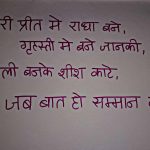 री प्रीत मे राधा बने,
गृहस्ती मे बने जानकी,
ली बनके शीश काटे,
जब बात हो सम्मान